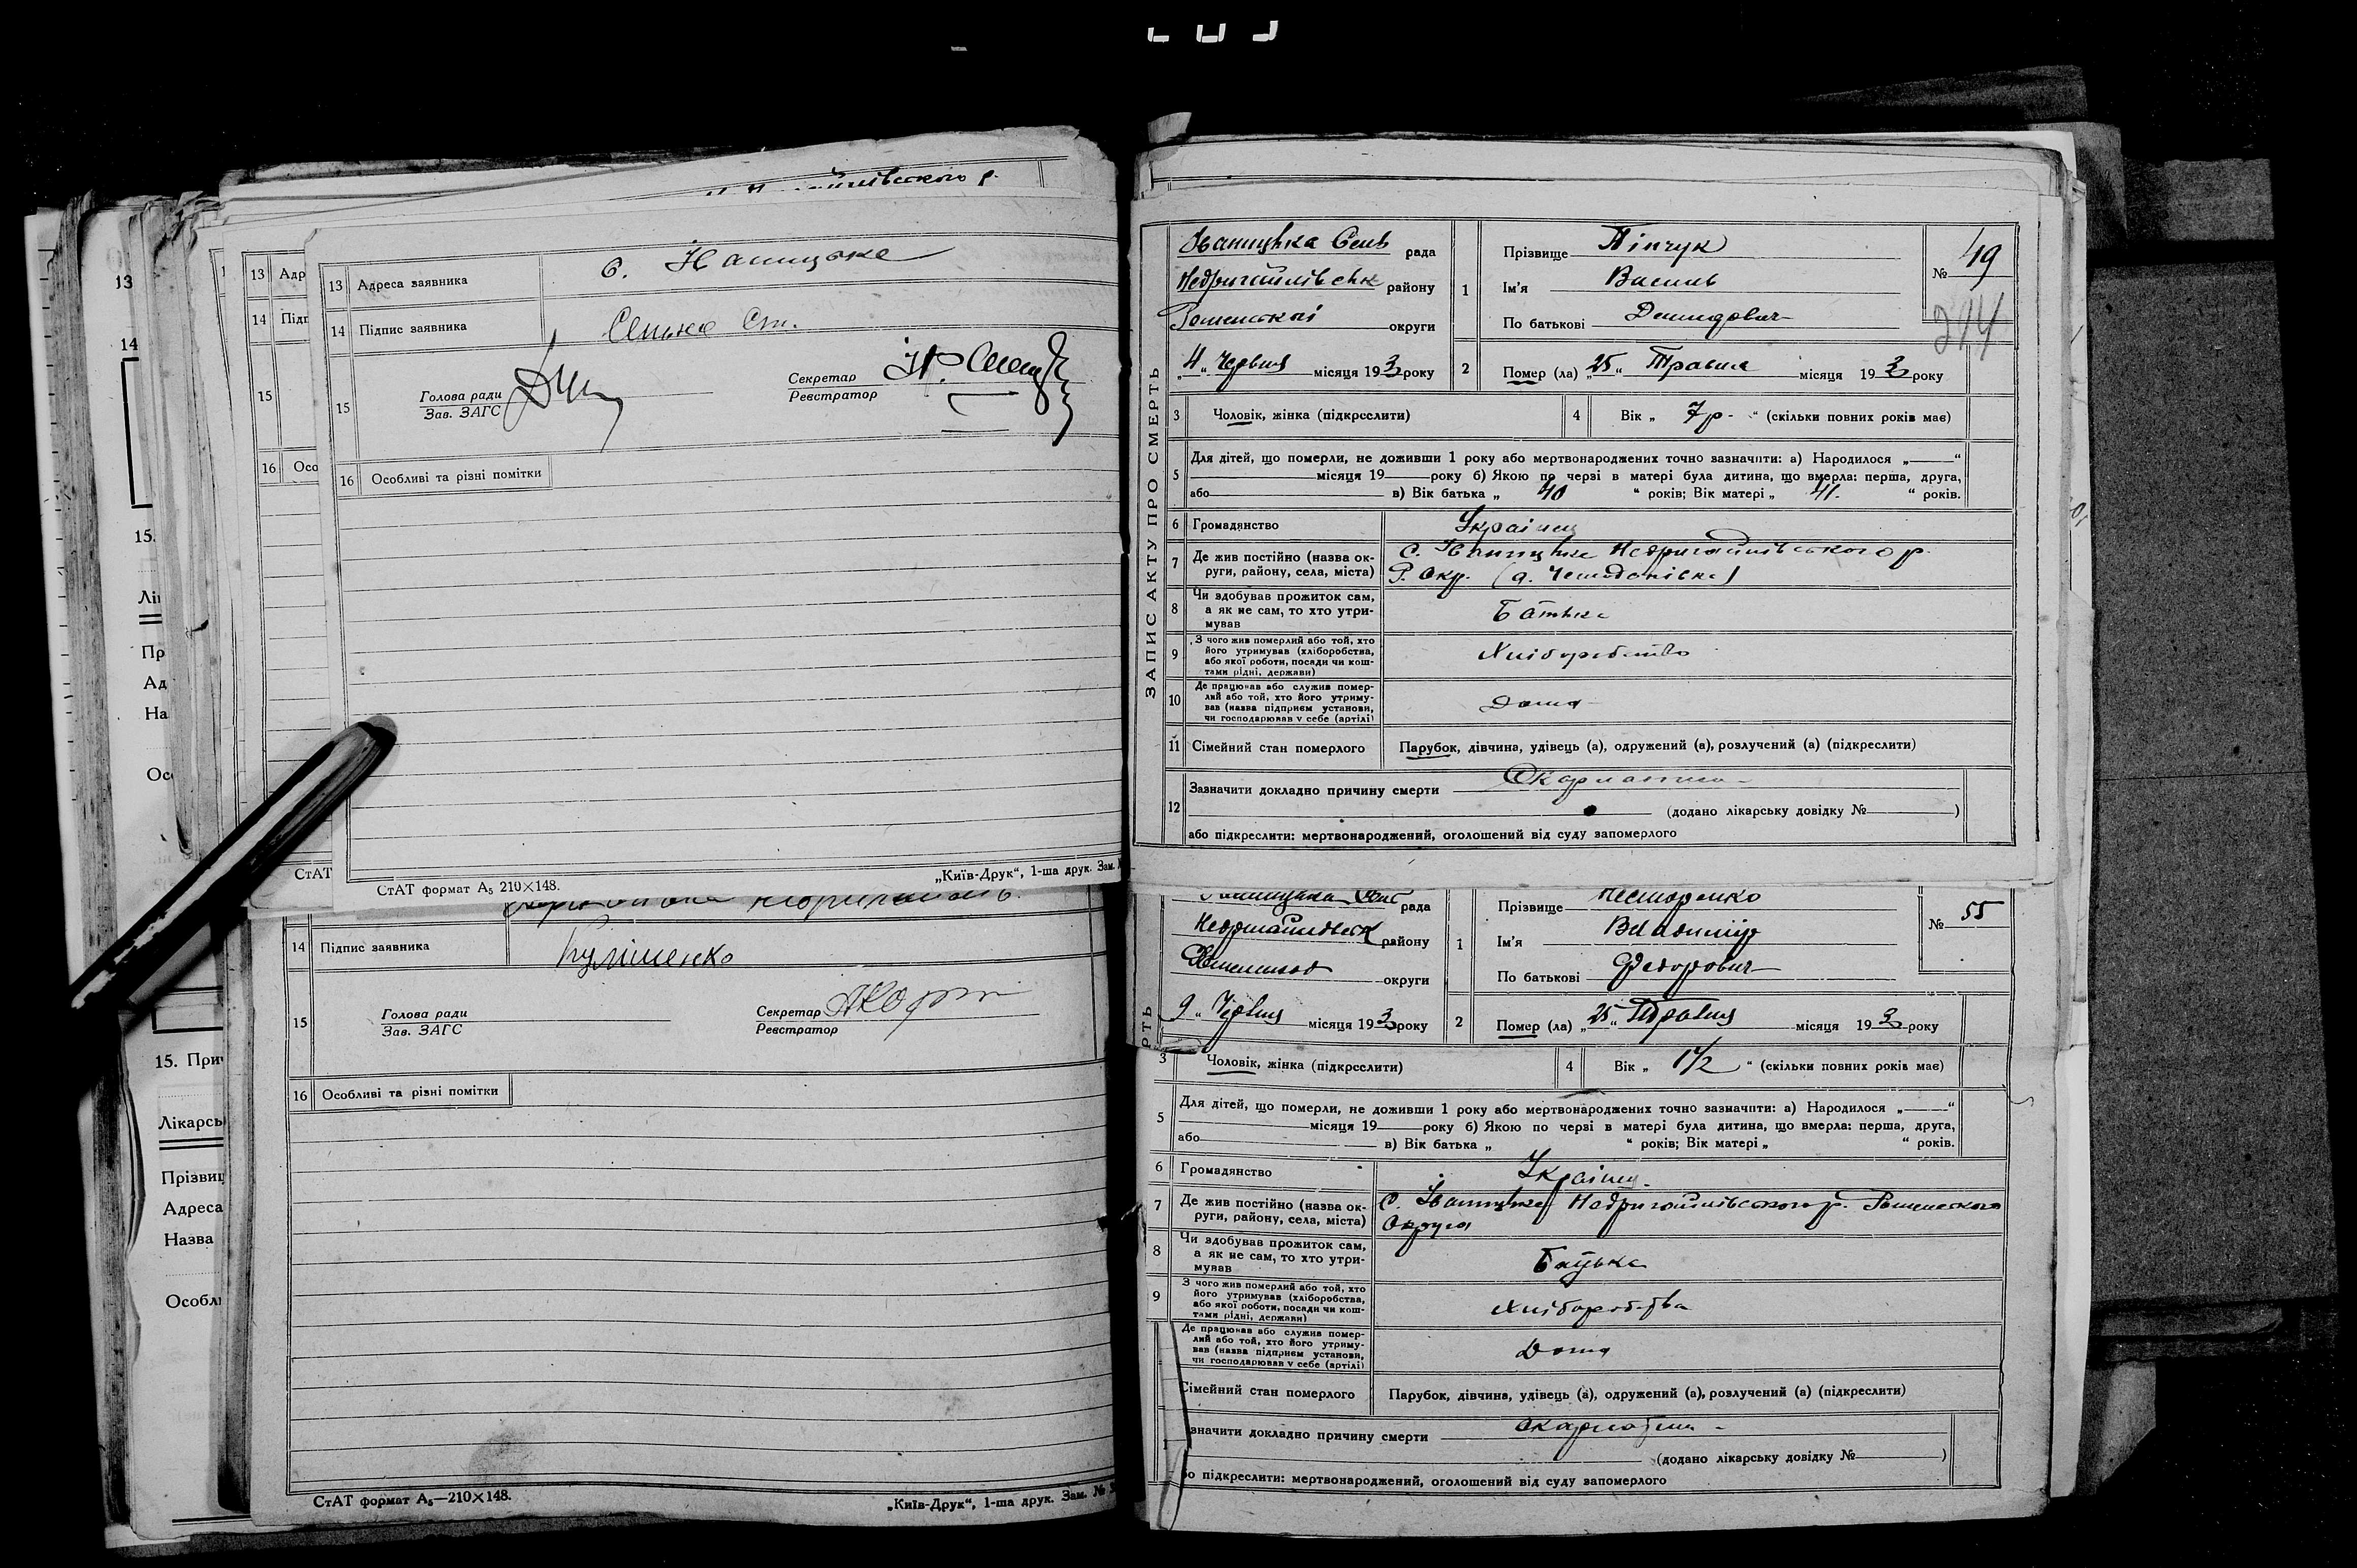 13 Адр
14 Підп
15
16 Осо
СтАТ
13 Адреса заявника с. Іваницьке
14 Підпис заявника
15 Голова ради
Зав. ЗАГС
Секретар
Реєстратор
16 Особливі та різні помітки
СтАТ формат А₅ 210×148.
„Київ-Друк“, 1-ша друк. Зам.
14 Підпис заявника Кулішенко
15 Голова ради
Зав. ЗАГС
Секретар
Реєстратор
16 Особливі та різні помітки
СтАТ формат А₅—210×148.
„Київ-Друк“, 1-ша друк. Зам. №
13
14
15.
Лі
Пр
Ад
На
Ос
15. При
Лікарсь
Прізвищ
Адреса
Назва
Особл
ЗАПИС АКТУ ПРО СМЕРТЬ
Іваницька Сель рада
Недригайлівськ району
Роменської округи
„4“ Червня місяця 193 року
1 Прізвище Пінчук
Ім'я Василь
По батькові Демидович
№ 49
244
2 Помер (ла) „25“ Травня місяця 193 року
3 Чоловік, жінка (підкреслити)
4 Вік „ 7 р. “ (скільки повних років має)
5 Для дітей, що померли, не доживши 1 року або мертвонароджених точно зазначити: а) Народилося „ “
місяця 19 року б) Якою по черзі в матері була дитина, що вмерла: перша, друга,
або в) Вік батька „ 40 “ років; Вік матері „ 41. “ років.
6 Громадянство Українец
7 Де жив постійно (назва округи, району, села, міста) С. Іваницьке Недригайлівського р.
Р. Окр.
8 Чи здобував прожиток сам, а як не сам, то хто утримував Батько
9 З чого жив померлий або той, хто його утримував (хліборобства, або якої роботи, посади чи коштами рідні, держави) Хліборобство
10 Де працював або служив померлий або той, хто його утримував (назва підприєм установи, чи господарював у себе (артілі) Дома
11 Сімейний стан померлого Парубок, дівчина, удівець (а), одружений (а), розлучений (а) (підкреслити)
12 Зазначити докладно причину смерти Скарлатина
(додано лікарську довідку № )
або підкреслити: мертвонароджений, оголошений від суду запомерлого
рада
Недригайлівськ району
округи
9 „ Червня місяця 193 року
РТЬ
1 Прізвище Нестеренко
Ім'я Владимір
По батькові Федорович
№ 55
2 Помер (ла) „25“ Травня місяця 193 року
3 Чоловік, жінка (підкреслити)
4 Вік „ 1½ “ (скільки повних років має)
5 Для дітей, що померли, не доживши 1 року або мертвонароджених точно зазначити: а) Народилося „ “
місяця 19 року б) Якою по черзі в матері була дитина, що вмерла: перша, друга,
або в) Вік батька „ “ років; Вік матері „ “ років.
6 Громадянство Українец.
7 Де жив постійно (назва округи, району, села, міста) С. Іваницьке Недригайлівського р. Роменского
Округа
8 Чи здобував прожиток сам, а як не сам, то хто утримував Батько
9 З чого жив померлий або той, хто його утримував (хліборобства, або якої роботи, посади чи коштами рідні, держави) Хліборобства
Де працював або служив померлий або той, хто його утримував (назва підприєм установи, чи господарював у себе (артілі) Дома
Сімейний стан померлого Парубок, дівчина, удівець (а), одружений (а), розлучений (а) (підкреслити)
значити докладно причину смерти Скарлатина
(додано лікарську довідку № )
бо підкреслити: мертвонароджений, оголошений від суду запомерлого